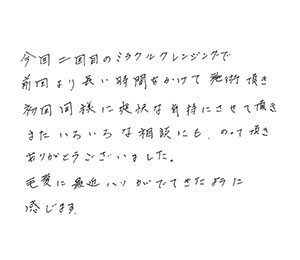 今回二回目のミラクルクレンジングで
前回より長い時間をかけて施術頂き
初回同様に爽快な気持にさせて頂き
またいろいろな相談にも、のって頂き
ありがとうございました。
毛髪に最近ハリがでてきたように
感じます。